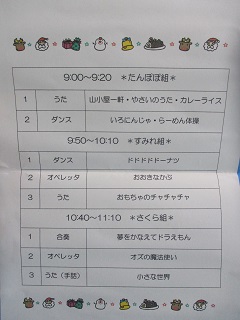 9:00～9:20　＊たんぽぽ組＊
1　うた　山小屋一軒・やさいのうた・カレーライス
2　ダンス　いろにんじゃ・らーめん体操
9:50～10:10　＊すみれ組＊
1　ダンス　ドドドドドーナツ
2　オペレッタ　おおきなかぶ
3　うた　おもちゃのチャチャチャ
10:40～11:10　＊さくら組＊
1　合奏　夢をかなえてドラえもん
2　オペレッタ　オズの魔法使い
3　うた（手話）　小さな世界